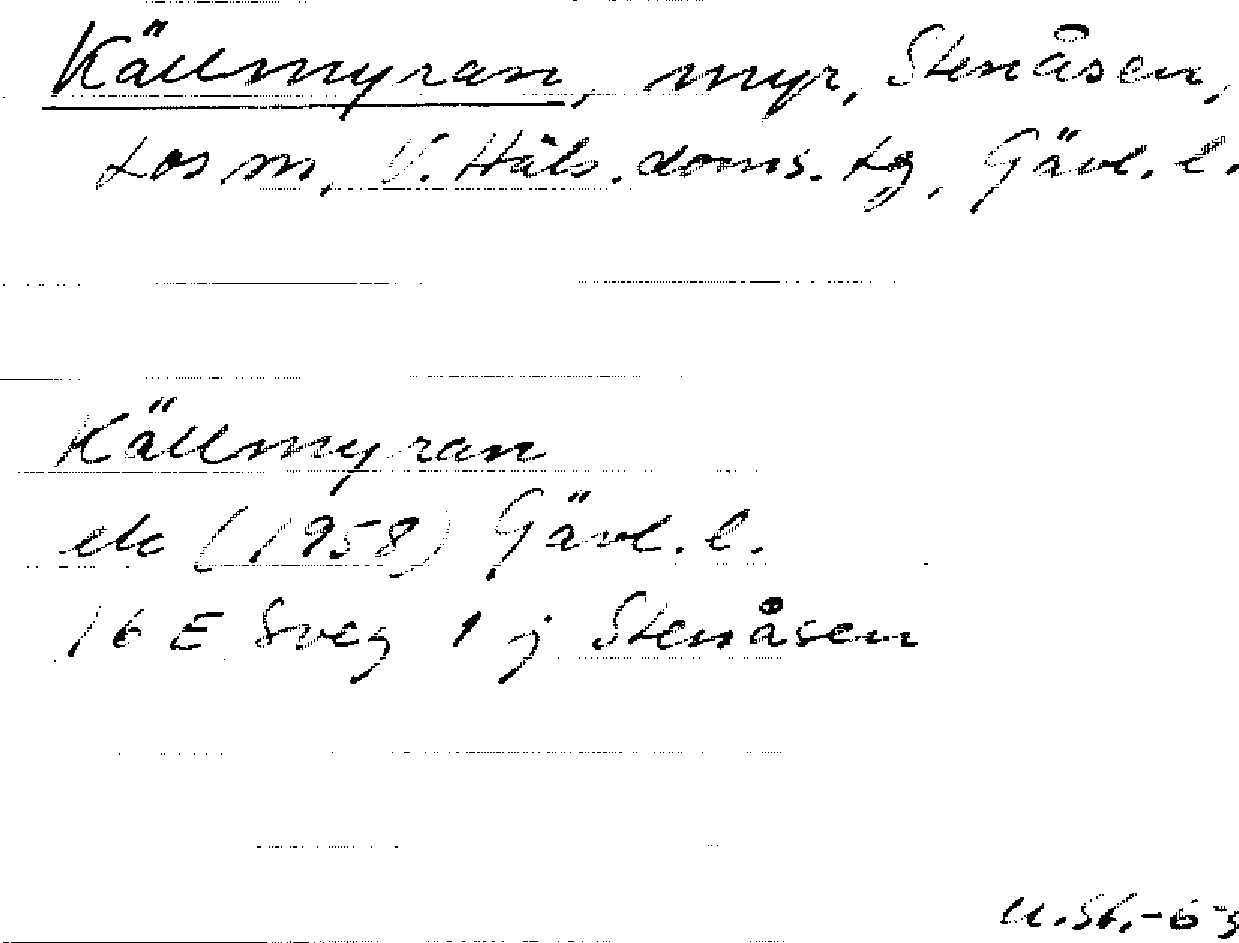 Källmyran, myr, Stenåsen,
Los sn, V. Häls. doms. tg, Gävl. l.
Källmyran
ek (1958) Gävl. l.
16 E Sveg 1 j Stenåsen
U. St. -63